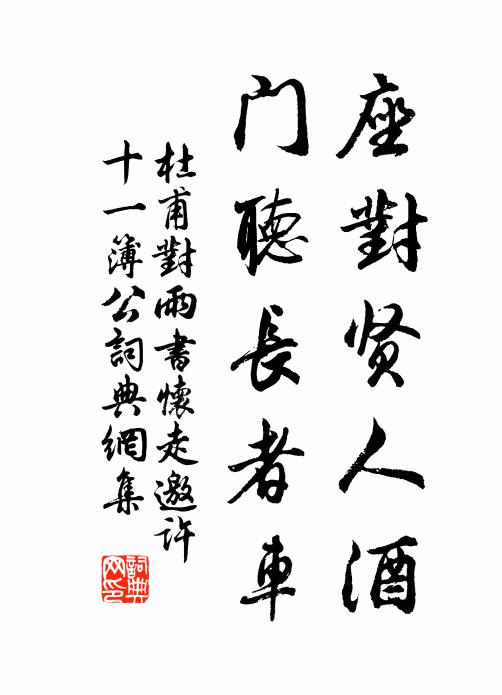 座對贤人酒
門聽長者車
杜甫對雨書懷走邀許
十一簿公詞典網集
詞典網印